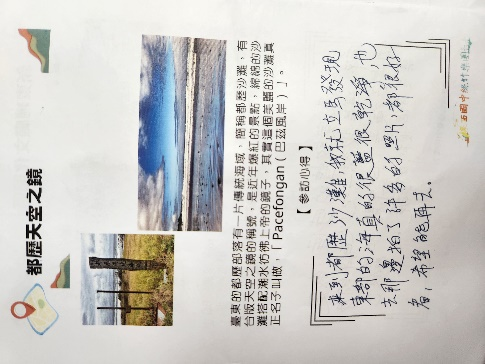 都歷天空之鏡
臺東的都歷部落有一片傳統海域，簡稱都歷沙灘，有
台版天空之鏡的稱號，是近年爆紅的景點，綿綿的沙
灘搭配潮水彷彿上帝的鏡子，其實這個美麗的沙灘真
正名子叫做，「Pacefongan（巴茲風岸）」。
【參訪心得】
來到都歷沙灘，我就立馬發現
東部的海真的很藍很乾淨，也
去那邊拍了許多的照片，都很好
看，希望能再去。